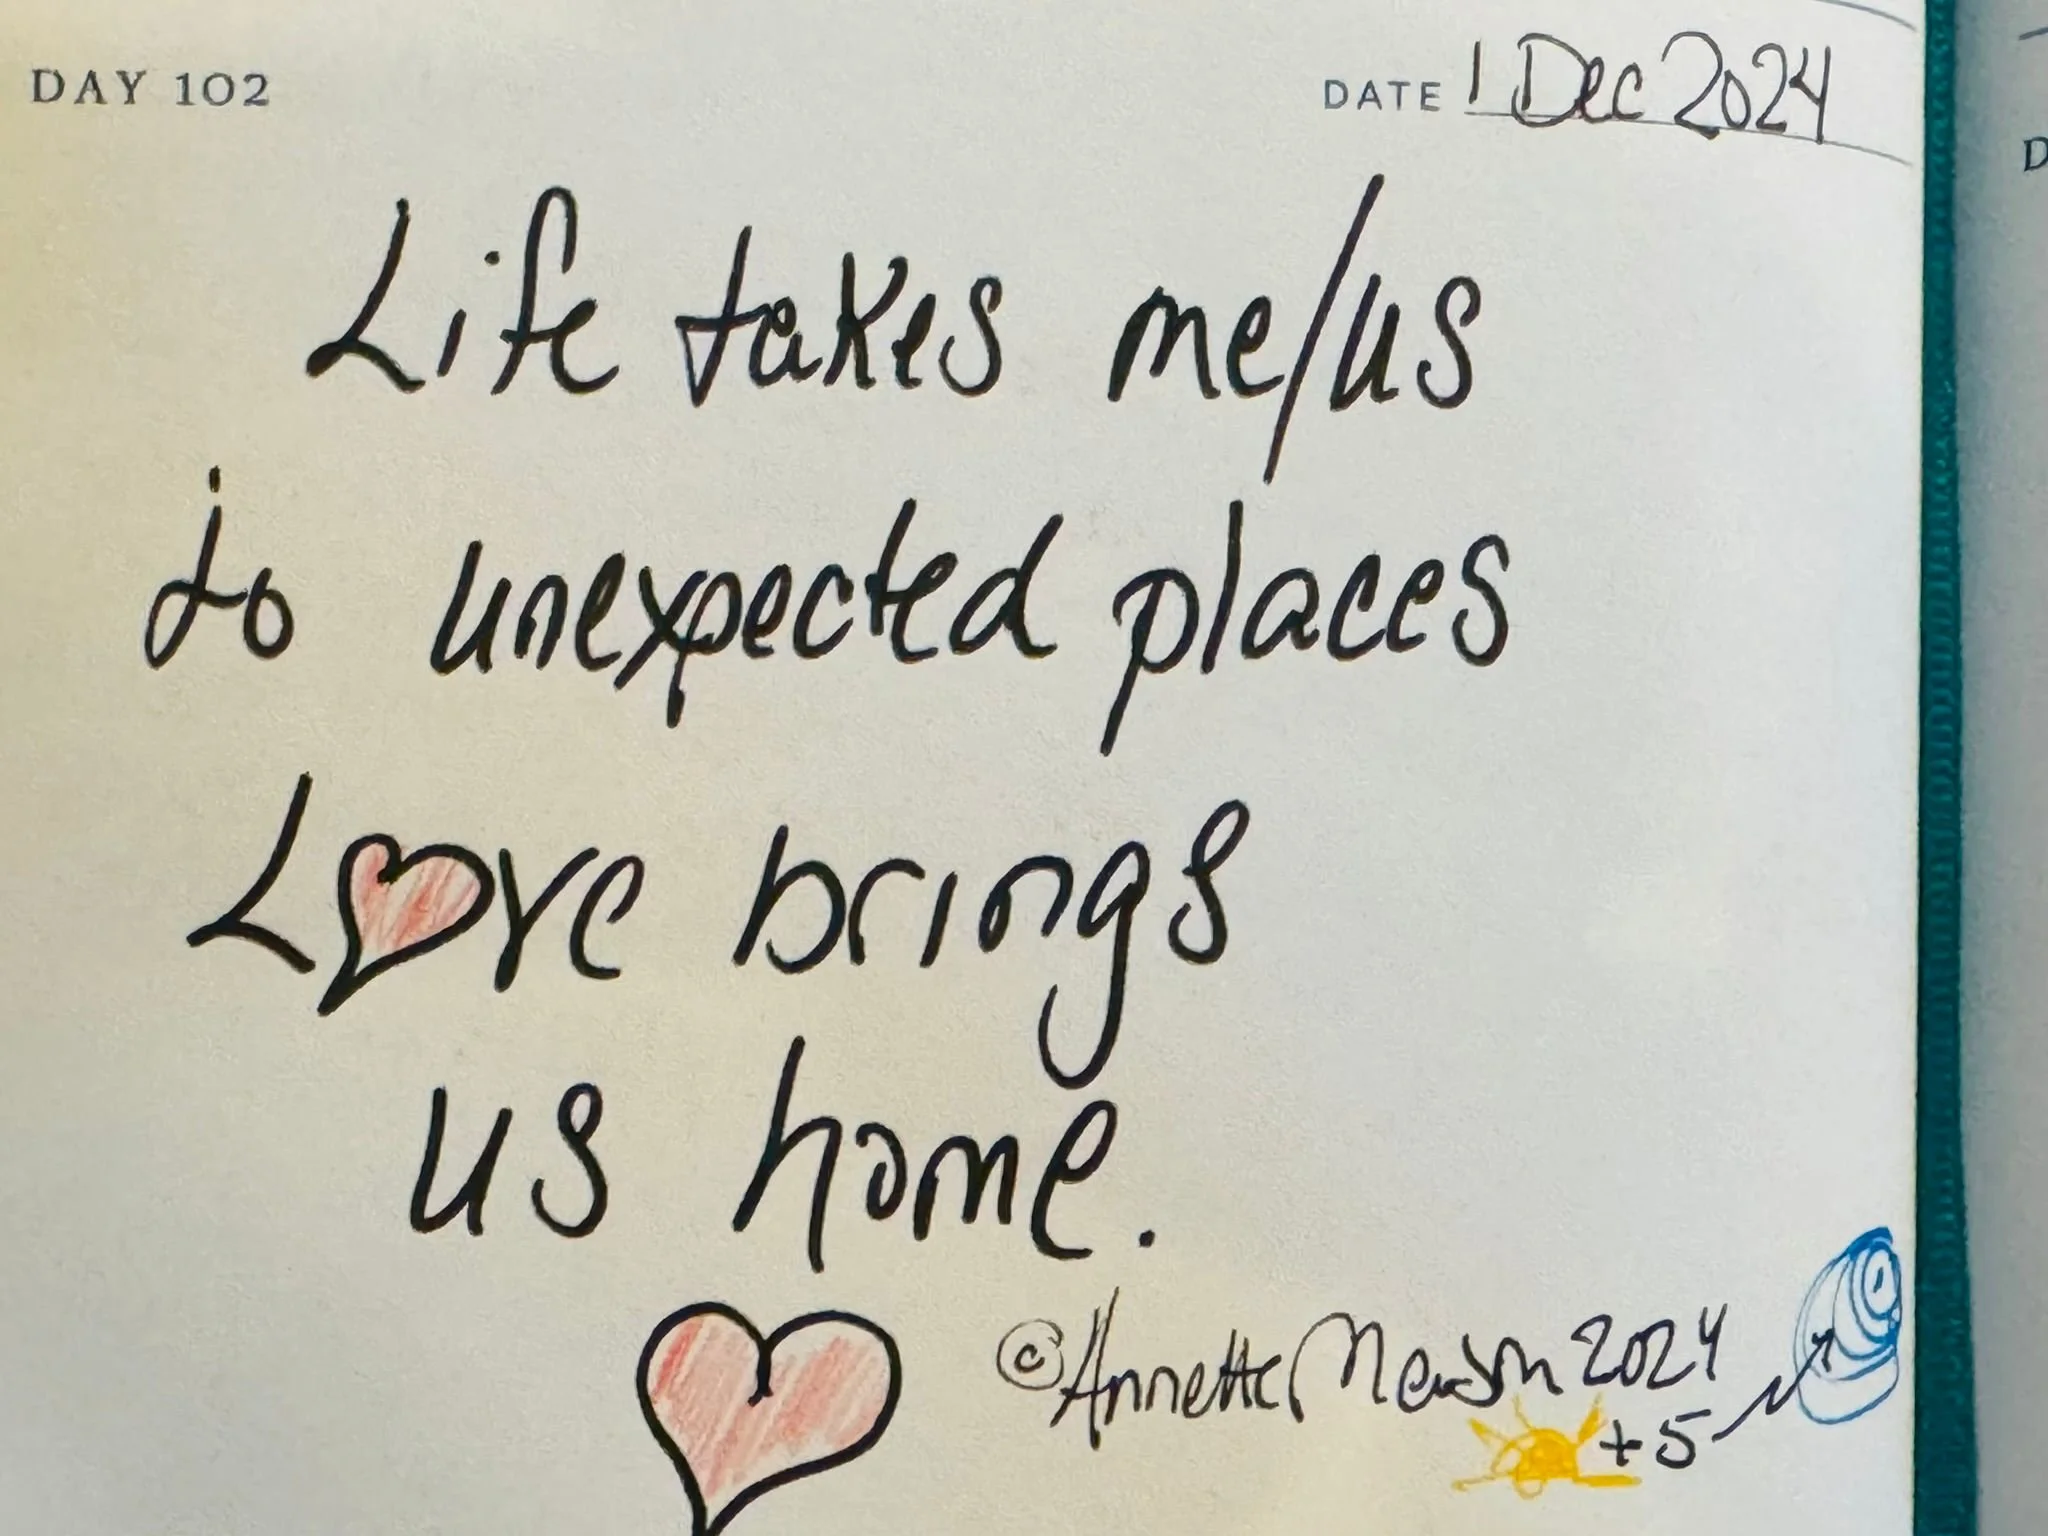 DAY 102
DATE 1 Dec 2024
Life takes me/us
to unexpected places
Love brings
us home.
© Annette 2024
+5
D